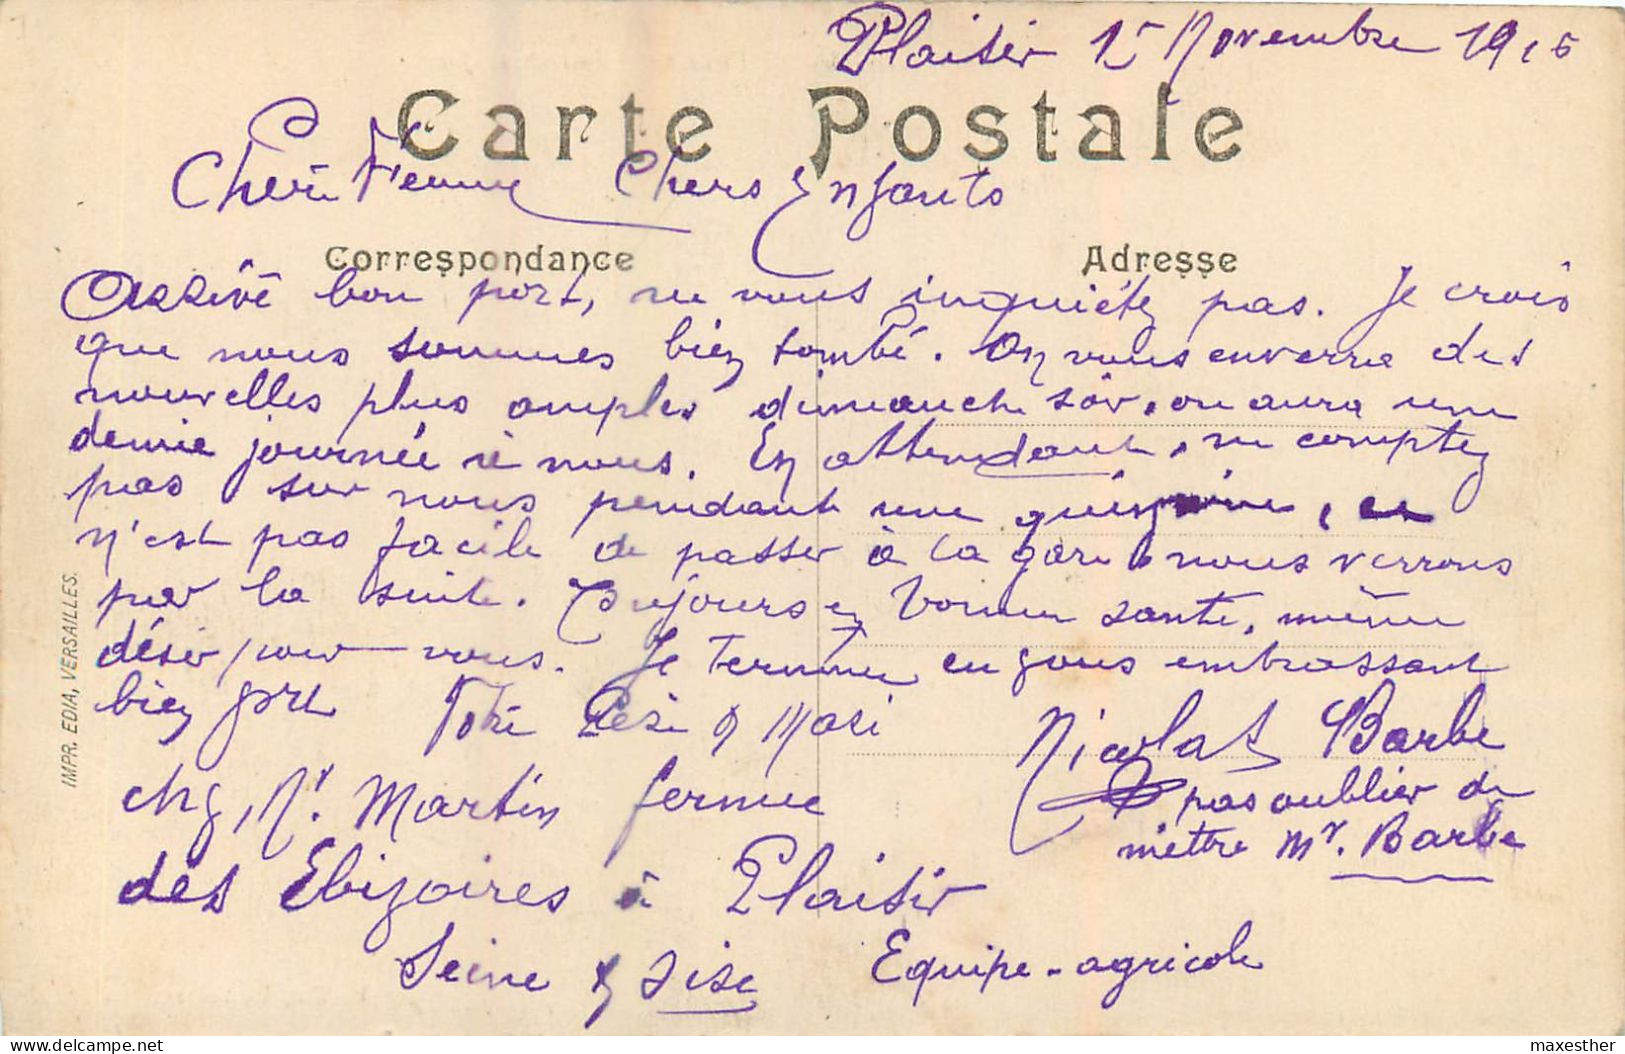 Plaisir 15 Novembre 1916
Carte Postale
Chèrie Femme Chers Enfants
Correspondance
Adresse
Arrivé bon port, ne vous inquiétez pas. Je crois
que nous sommes bien tombé. On vous enverra des
nouvelles plus amples dimanche soir, on aura une
demie journée à nous. En attendant, ne comptez
pas sur nous pendant une quinzaine, ce
n'est pas facile de passer à la gare, nous verrons
par la suite. Toujours en bonne santé, même
désir pour vous. Je termine en vous embrassant
bien fort Votre Père & Mari
Nicolas Barbe
chez Mr. Martin ferme
pas oublier de
mettre Mr. Barbe
des Ebizoires à Plaisir
Seine & Oise Equipe-agricole
IMPR. EDIA, VERSAILLES.
delcampe.net
maxesther